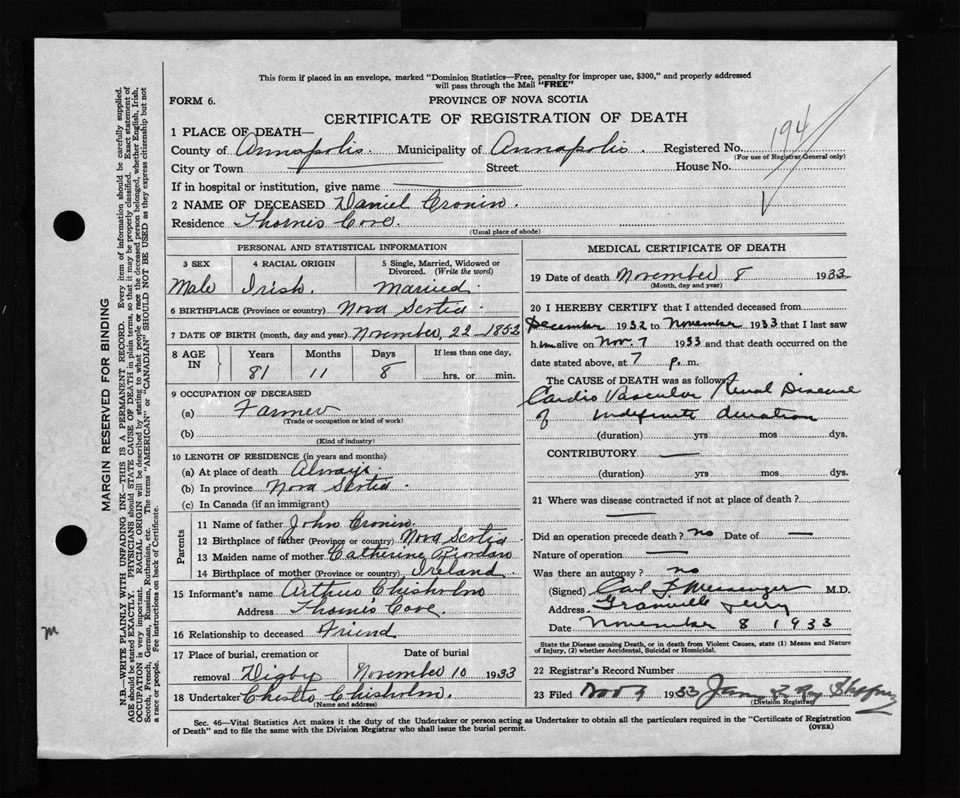 This form if placed in an envelope, marked "Dominion Statistics—Free, penalty for improper use, $300," and properly addressed
will pass through the Mail "FREE"
FORM 6.
PROVINCE OF NOVA SCOTIA
CERTIFICATE OF REGISTRATION OF DEATH
194
1 PLACE OF DEATH—
County of Annapolis. Municipality of Annapolis. Registered No.
(For use of Registrar General only)
City or Town Street House No.
If in hospital or institution, give name
2 NAME OF DECEASED Daniel Cronin.
Residence Thornes Cove.
(Usual place of abode)
PERSONAL AND STATISTICAL INFORMATION
3 SEX 4 RACIAL ORIGIN 5 Single, Married, Widowed or
Divorced. (Write the word)
Male Irish. Married.
6 BIRTHPLACE (Province or country) Nova Scotia.
7 DATE OF BIRTH (month, day and year) November, 22 1852
8 AGE IN Years Months Days If less than one day,
81 11 8 hrs. or min.
9 OCCUPATION OF DECEASED
(a) Farmer
(Trade or occupation or kind of work)
(b)
(Kind of industry)
10 LENGTH OF RESIDENCE (in years and months)
(a) At place of death Always.
(b) In province Nova Scotia.
(c) In Canada (if an immigrant)
Parents
11 Name of father John Cronin.
12 Birthplace of father (Province or country) Nova Scotia
13 Maiden name of mother Catherine Riordan
14 Birthplace of mother (Province or country) Ireland.
15 Informant's name Arthur Chisholm
Address Thornes Cove.
16 Relationship to deceased Friend
17 Place of burial, cremation or Date of burial
removal Digby November 10 1933
18 Undertaker Chisholm.
(Name and address)
MEDICAL CERTIFICATE OF DEATH
19 Date of death November 8 1933
(Month, day and year)
20 I HEREBY CERTIFY that I attended deceased from
December 1932 to November 1933 that I last saw
him alive on Nov. 7 1933 and that death occurred on the
date stated above, at 7 p. m.
The CAUSE OF DEATH was as follows
Cardio Vascular Renal Disease
of indefinite duration
(duration) yrs mos dys.
CONTRIBUTORY
(duration) yrs mos dys.
21 Where was disease contracted if not at place of death?
Did an operation precede death? no Date of
Nature of operation
Was there an autopsy? no
(Signed) Carl F. Messenger M.D.
Address Granville Ferry
Date November 8 1933
State the Disease causing Death, or in death from Violent Causes, state (1) Means and Nature
of Injury, (2) whether Accidental, Suicidal or Homicidal.
22 Registrar's Record Number
23 Filed Nov 9 1933
(Division Registrar)
Sec. 46—Vital Statistics Act makes it the duty of the Undertaker or person acting as Undertaker to obtain all the particulars required in the "Certificate of Registration
of Death" and to file the same with the Division Registrar who shall issue the burial permit.
(OVER)
MARGIN RESERVED FOR BINDING
N.B.—WRITE PLAINLY WITH UNFADING INK—THIS IS A PERMANENT RECORD. Every item of information should be carefully supplied.
AGE should be stated EXACTLY. PHYSICIANS should STATE CAUSE OF DEATH in plain terms, so that it may be properly classified. Exact statement of
OCCUPATION is very important. RACIAL ORIGIN will be described by stating to what people or race the deceased person belonged, whether English, Irish,
Scotch, French, German, Russian, Ruthenian, etc. The terms "AMERICAN" or "CANADIAN" SHOULD NOT BE USED as they express citizenship but not
a race or people. See instructions on back of Certificate.
m